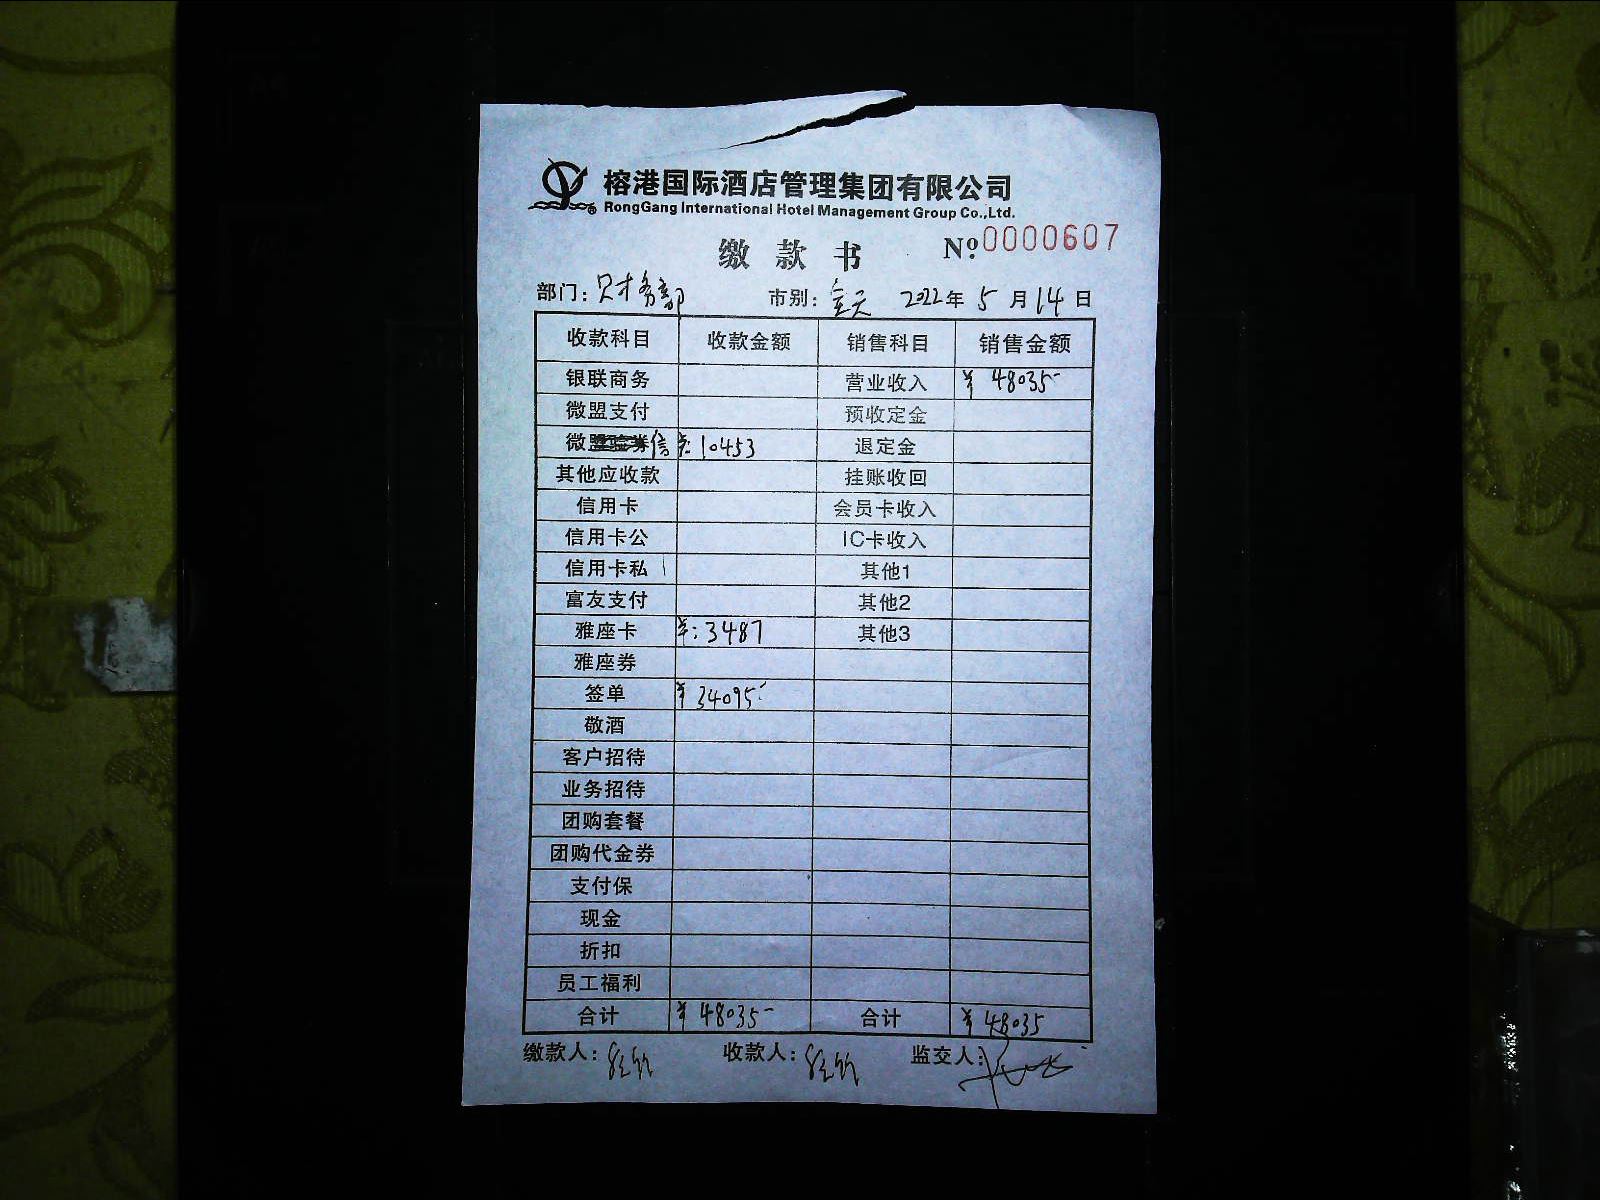 榕港国际酒店管理集团有限公司
RongGang International Hotel Management Group Co.,Ltd.
缴款书 Nº:0000607
部门:财务部 市别:全天 2022年5月14日
收款科目 收款金额 销售科目 销售金额
银联商务 营业收入 ¥48035-
微盟支付 预收定金
微信 ¥:10453 退定金
其他应收款 挂账收回
信用卡 会员卡收入
信用卡公 IC卡收入
信用卡私 其他1
富友支付 其他2
雅座卡 ¥:3487 其他3
雅座券
签单 ¥34095-
敬酒
客户招待
业务招待
团购套餐
团购代金券
支付保
现金
折扣
员工福利
合计 ¥48035- 合计 ¥48035
缴款人: 收款人: 监交人: